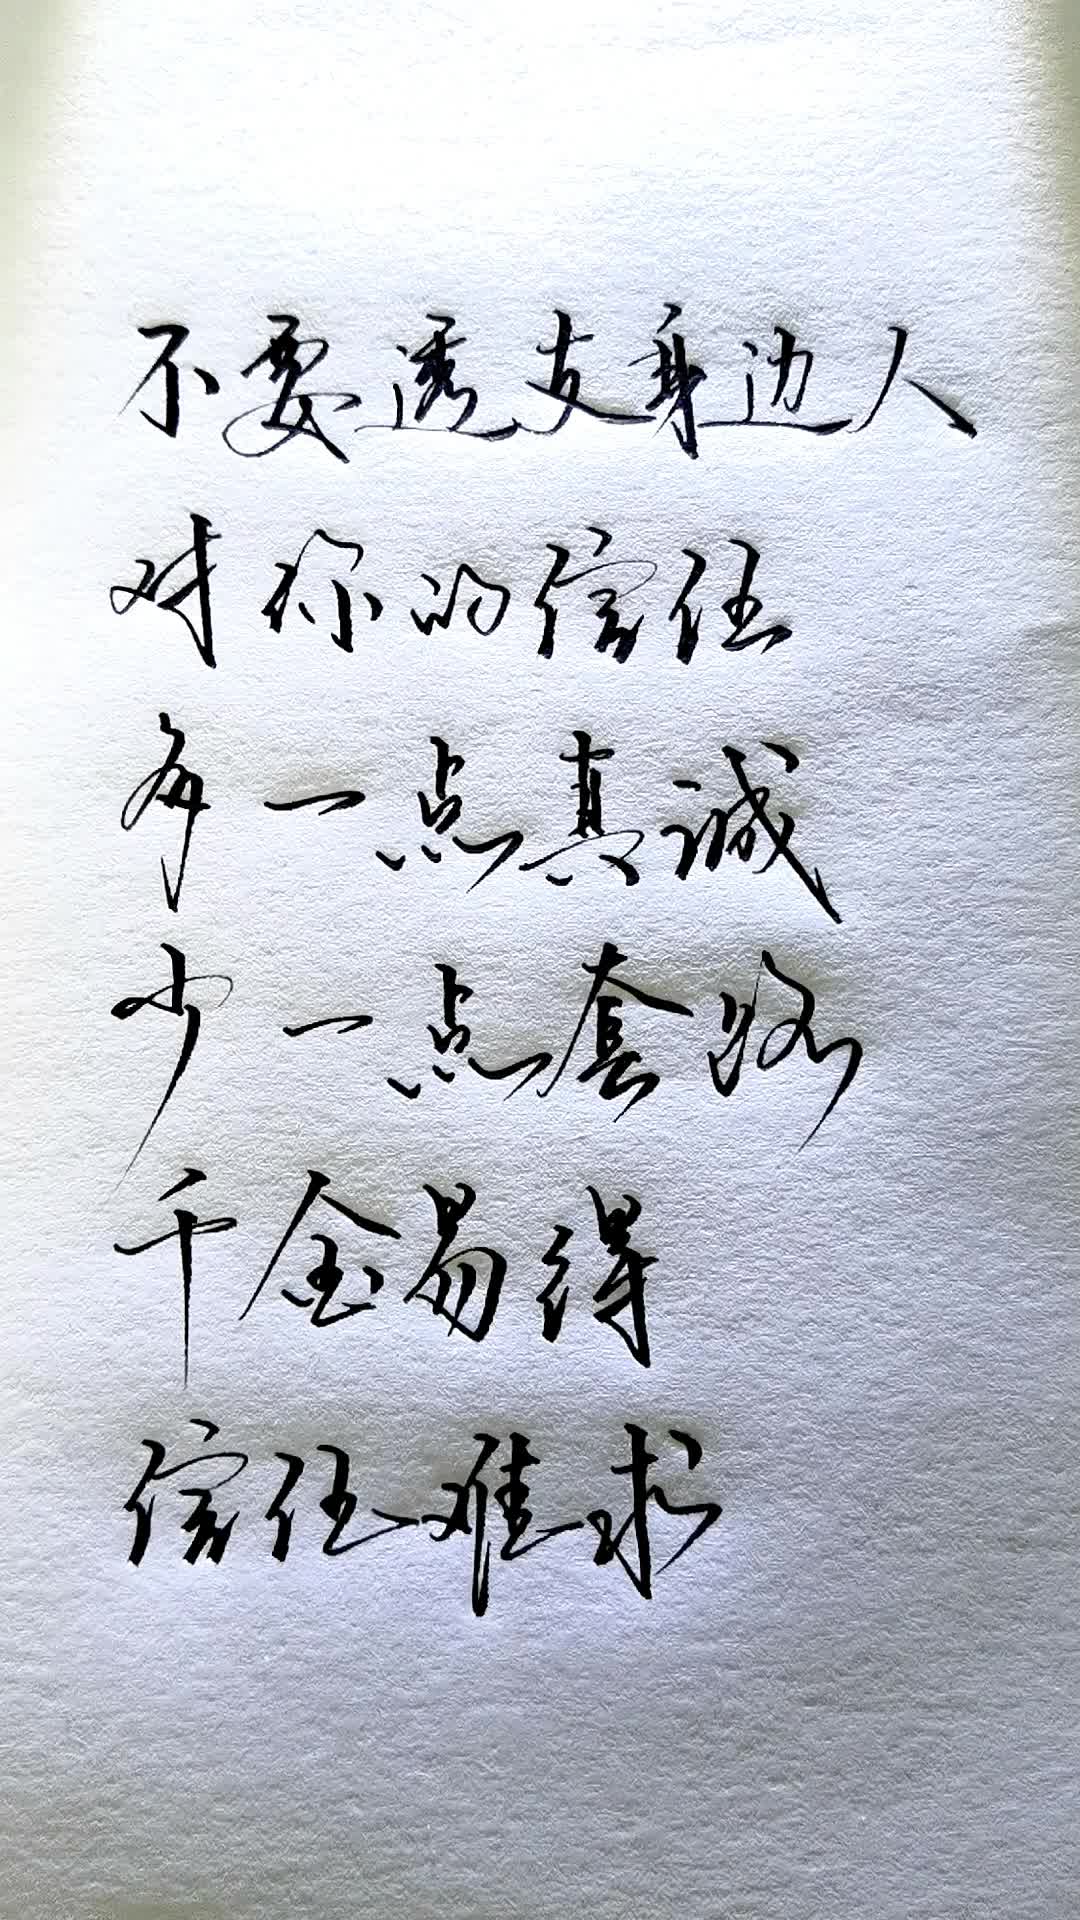 不要透支身边人
对你的信任
多一点真诚
少一点套路
千金易得
信任难求